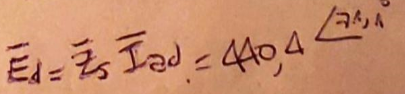 Ēd = Z̄s Īad = 440,4 ∠71,1°